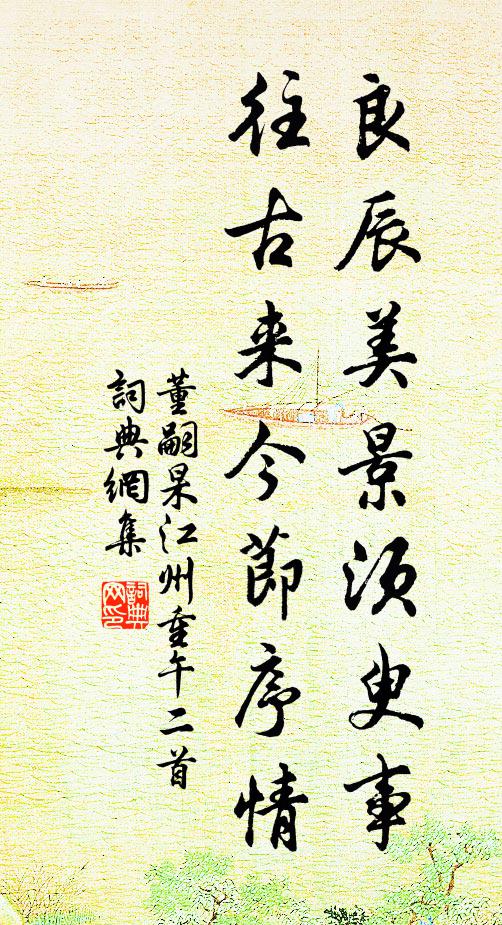 良辰美景須臾事
往古来今節序情
董嗣杲江州重午二首
詞典網集
詞典网印